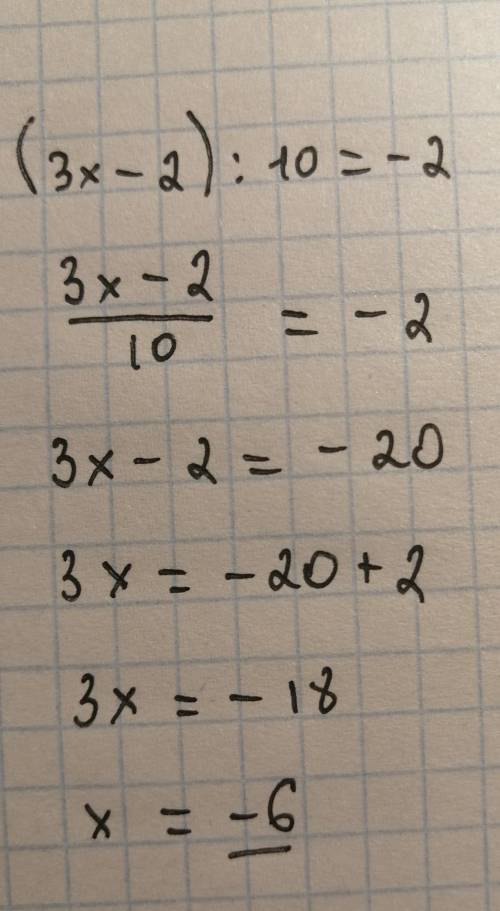 (3x - 2) : 10 = -2
3x - 2
10
= -2
3x - 2 = -20
3x = -20 + 2
3x = -18
x = -6